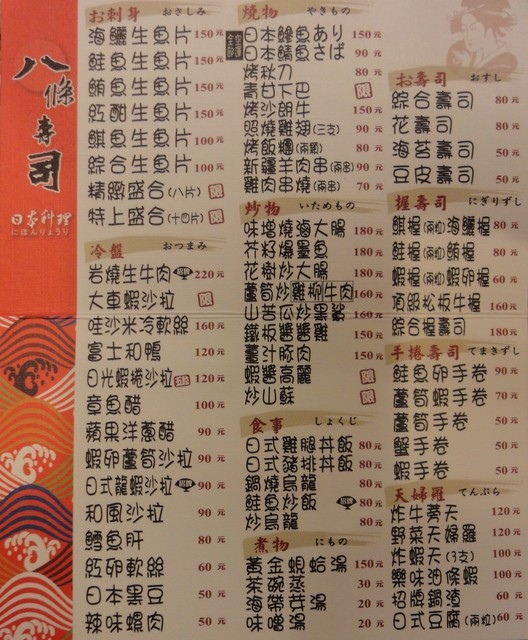 八條壽司
日本料理
にほんりょうり
お刺身 おさしみ
海鱺生魚片 150元
鮭生魚片 150元
鮪生魚片 150元
紅甜生魚片 150元
鯕魚生魚片 100元
綜合生魚片 100元
精緻盛合(八片) 限
特上盛合(十四片) 限
冷盤 おつまみ
岩燒生牛肉 220元
大車蝦沙拉 限
哇沙米冷軟絲 160元
富士和鴨 120元
日光蝦捲沙拉 120元
章魚醋 100元
蘋果洋蔥醋 90元
蝦卵蘆筍沙拉 90元
日式龍蝦沙拉 90元
和風沙拉 90元
鱈魚肝 80元
紅卵軟絲 60元
日本黑豆 50元
辣味螺肉 50元
燒物 やきもの
日本鰺魚あり 150元
日本鯖魚さば 90元
烤秋刀 80元
青甘下巴 限
烤沙朗牛 150元
照燒雞翅(三支) 90元
烤飯糰(兩顆) 80元
新疆羊肉串(兩串) 90元
雞肉串燒(兩串) 70元
炒物 いためもの
味增燒海大腸 180元
芥籽爆墨魚 180元
花樹炒大腸 180元
蘆筍炒雞柳牛肉 160元
山苦瓜炒黑鯊 160元
鐵板醬醬雞 150元
薑汁豚肉 150元
蝦醬高麗 限
炒山蘇 限
食事 しょくじ
日式雞腿丼飯 80元
日式豬排丼飯 80元
鍋燒烏龍 80元
鮭魚炒飯 80元
炒烏龍 80元
煮物 にもの
黃金蜆蛤湯 150元
茶碗蒸 30元
海帶芽湯 20元
味噌湯 20元
お壽司 おすし
綜合壽司 80元
花壽司 80元
海苔壽司 50元
豆皮壽司 50元
握壽司 にぎりずし
鯕握(兩粒)海鱺握 80元
鮭握(兩粒)鮪握 80元
蝦握(兩粒)蝦卵握 60元
頂級松板牛握 160元
綜合握壽司 180元
手捲壽司 てまきずし
鮭魚卵手卷 90元
蘆筍蝦手卷 70元
蘆筍手卷 50元
蟹手卷 50元
蝦手卷 50元
天婦羅 てんぷら
炸牛蒡天 120元
野菜天婦羅 120元
炸蝦天(3支) 100元
樂味油條蝦 100元
招牌鍋渣 60元
日式豆腐(兩粒) 60元